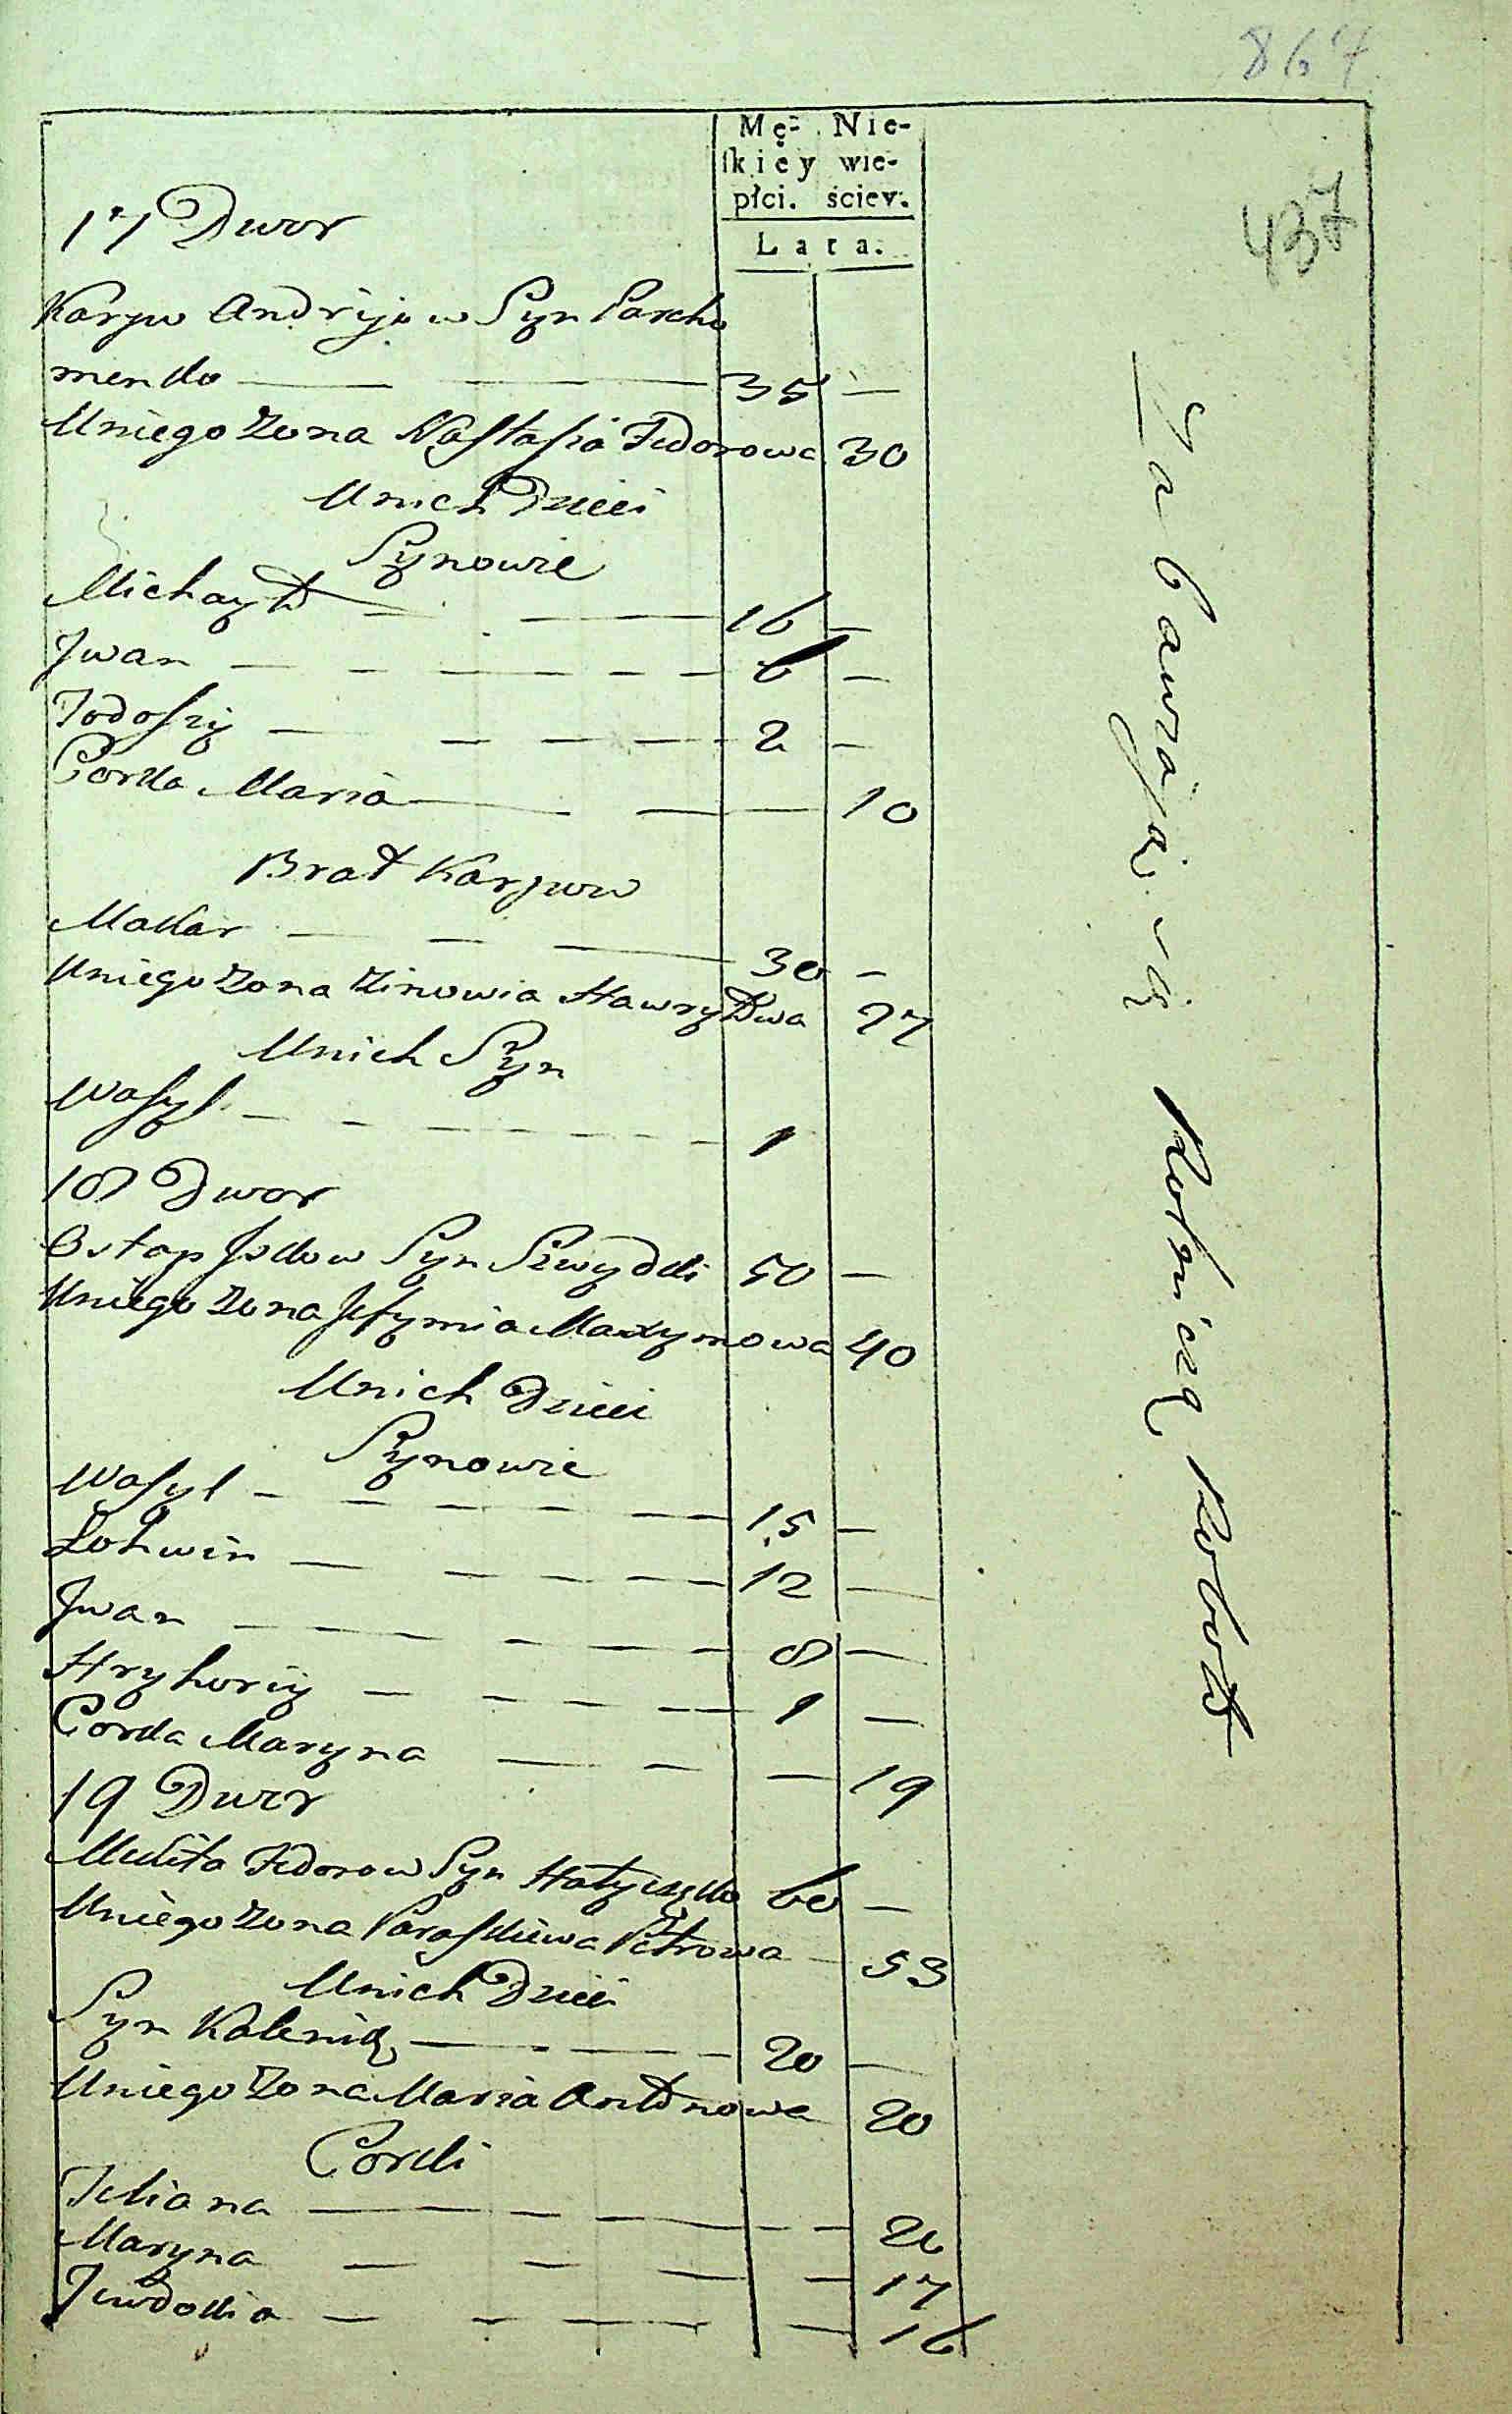 864
Mę- Nie-
skiey wie-
płci. ściey.
437
L a t a.
17 Dwor
Karpo Andrijow Syn Parcho
menko — — — 35 —
Uniego Zona Nastasia Fedorowa 30
Unich Dzieci
Synowie
Michayło — — 16 —
Jwan — — — — — — 6 —
Fodosiy — — — — — 2 —
Corka Maria — — — 10
Brat Karpow
Makar — — — 30 —
Uniego Zona Zinowia Hawryłowa 27
Unich Syn
Wasyl — — — — — — — 1
18 Dwor
Ostap Jakow Syn Szwydki 50 —
Uniego Zona Jefymia Maxymowa 40
Unich Dzieci
Synowie
Wasyl — — — — — — 15 —
Łohwin — — — — — 12 —
Jwan — — — — — — 8 —
Hryhoriy — — — — — 1 —
Corka Maryna — — — 19
19 Dwor
Mikita Fedorow Syn Hałyczko 60 —
Uniego Zona Paraskiewa Petrowa — 53
Unich Dzieci
Syn Kalenik — — — — 20 —
Uniego Zona Maria Antonowa 20
Corki
Juliana — — — — — 20
Maryna — — — — 17
Jewdokia — — — — 16
Zabawiają się Rolniczą Robotą